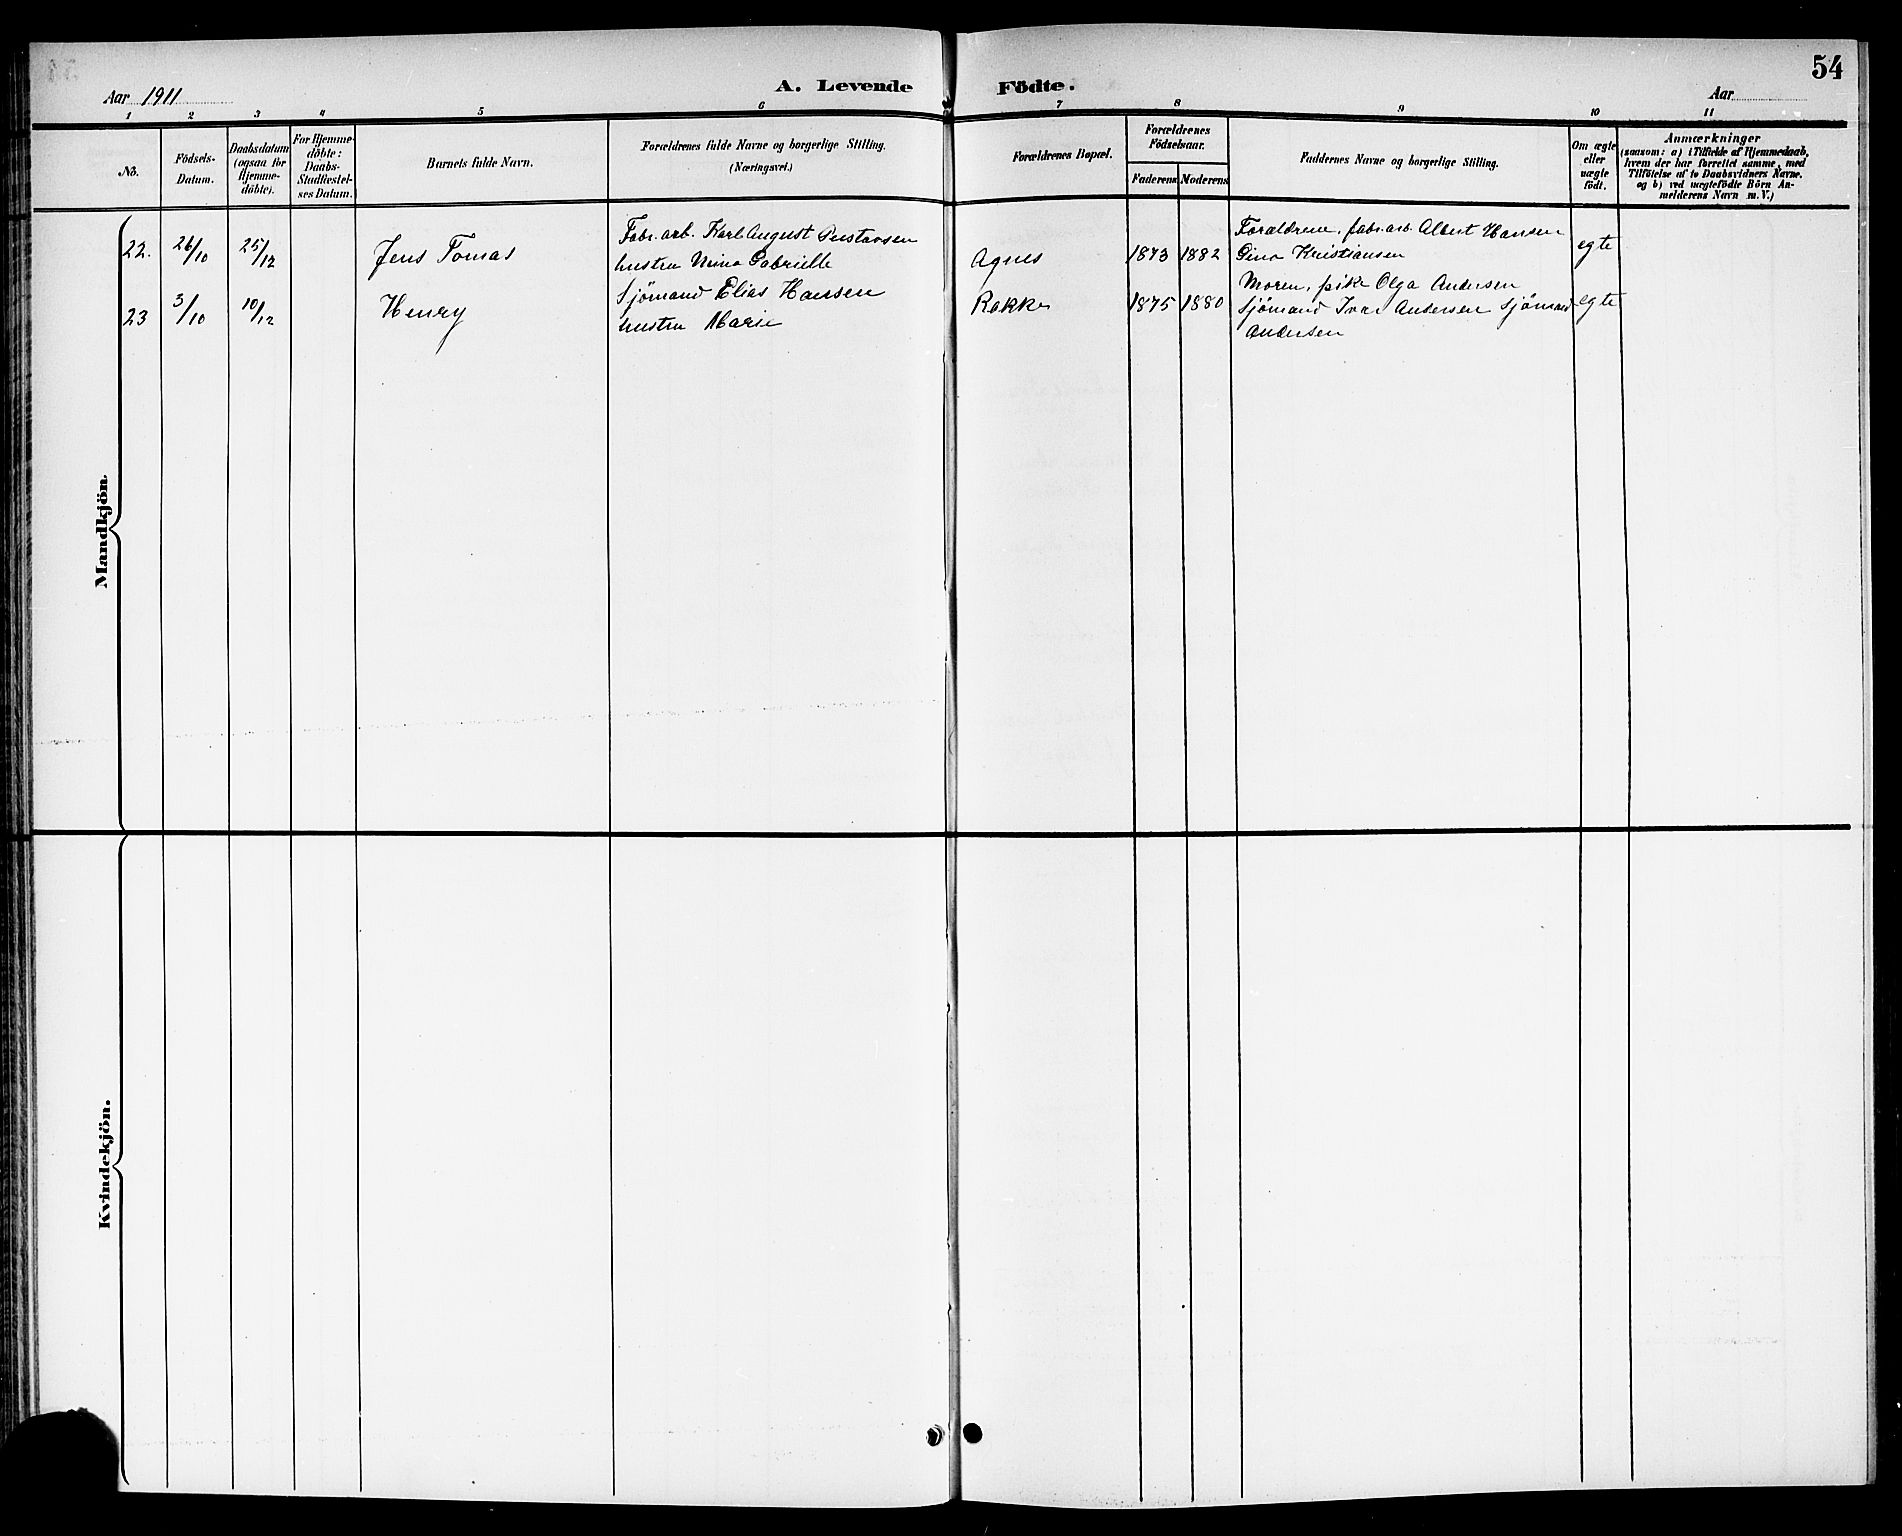 54
Aar 1911
A. Levende Födte.
Aar
1 2 3 4 5 6 7 8 9 10 11
No.
Födsels-
Datum.
Daabsdatum
(ogsaa for
Hjemme-
döbte).
For Hjemme-
döbte:
Daabs-
Stadfestel-
ses Datum.
Barnets fulde Navn.
Forældrenes fulde Navne og borgerlige Stilling.
(Næringsvei.)
Forældrenes Bopæl.
Forældrenes
Födselsaar.
Faderens Moderens
Faddernes Navne og borgerlige Stilling.
Om ægte
eller
uægte
födt.
Anmærkninger
(saasom: a) i Tilfælde af Hjemmedaab,
hvem der har forrettet samme, med
Tilföielse af to Daabsvidners Navne.
og b) ved uægtefödte Börn An-
melderens Navn m. V.)
Mandkjön.
22. 26/10 25/12 Jens Tomas
Fabr. arb. Karl August Gustavsen
hustru Gabrielle
Agnes 1873 1882
Forældrene, fabr. arb. Albert Hansen
Gina Kristiansen
egte
23 3/10 10/12 Henry
Sjömand Elias Hansen
hustru Marie
Rakke 1875 1880
Moren, pike Olga Andersen
Sjömand Ivar Andersen Sjömand
Andersen
egte
Kvindekjön.